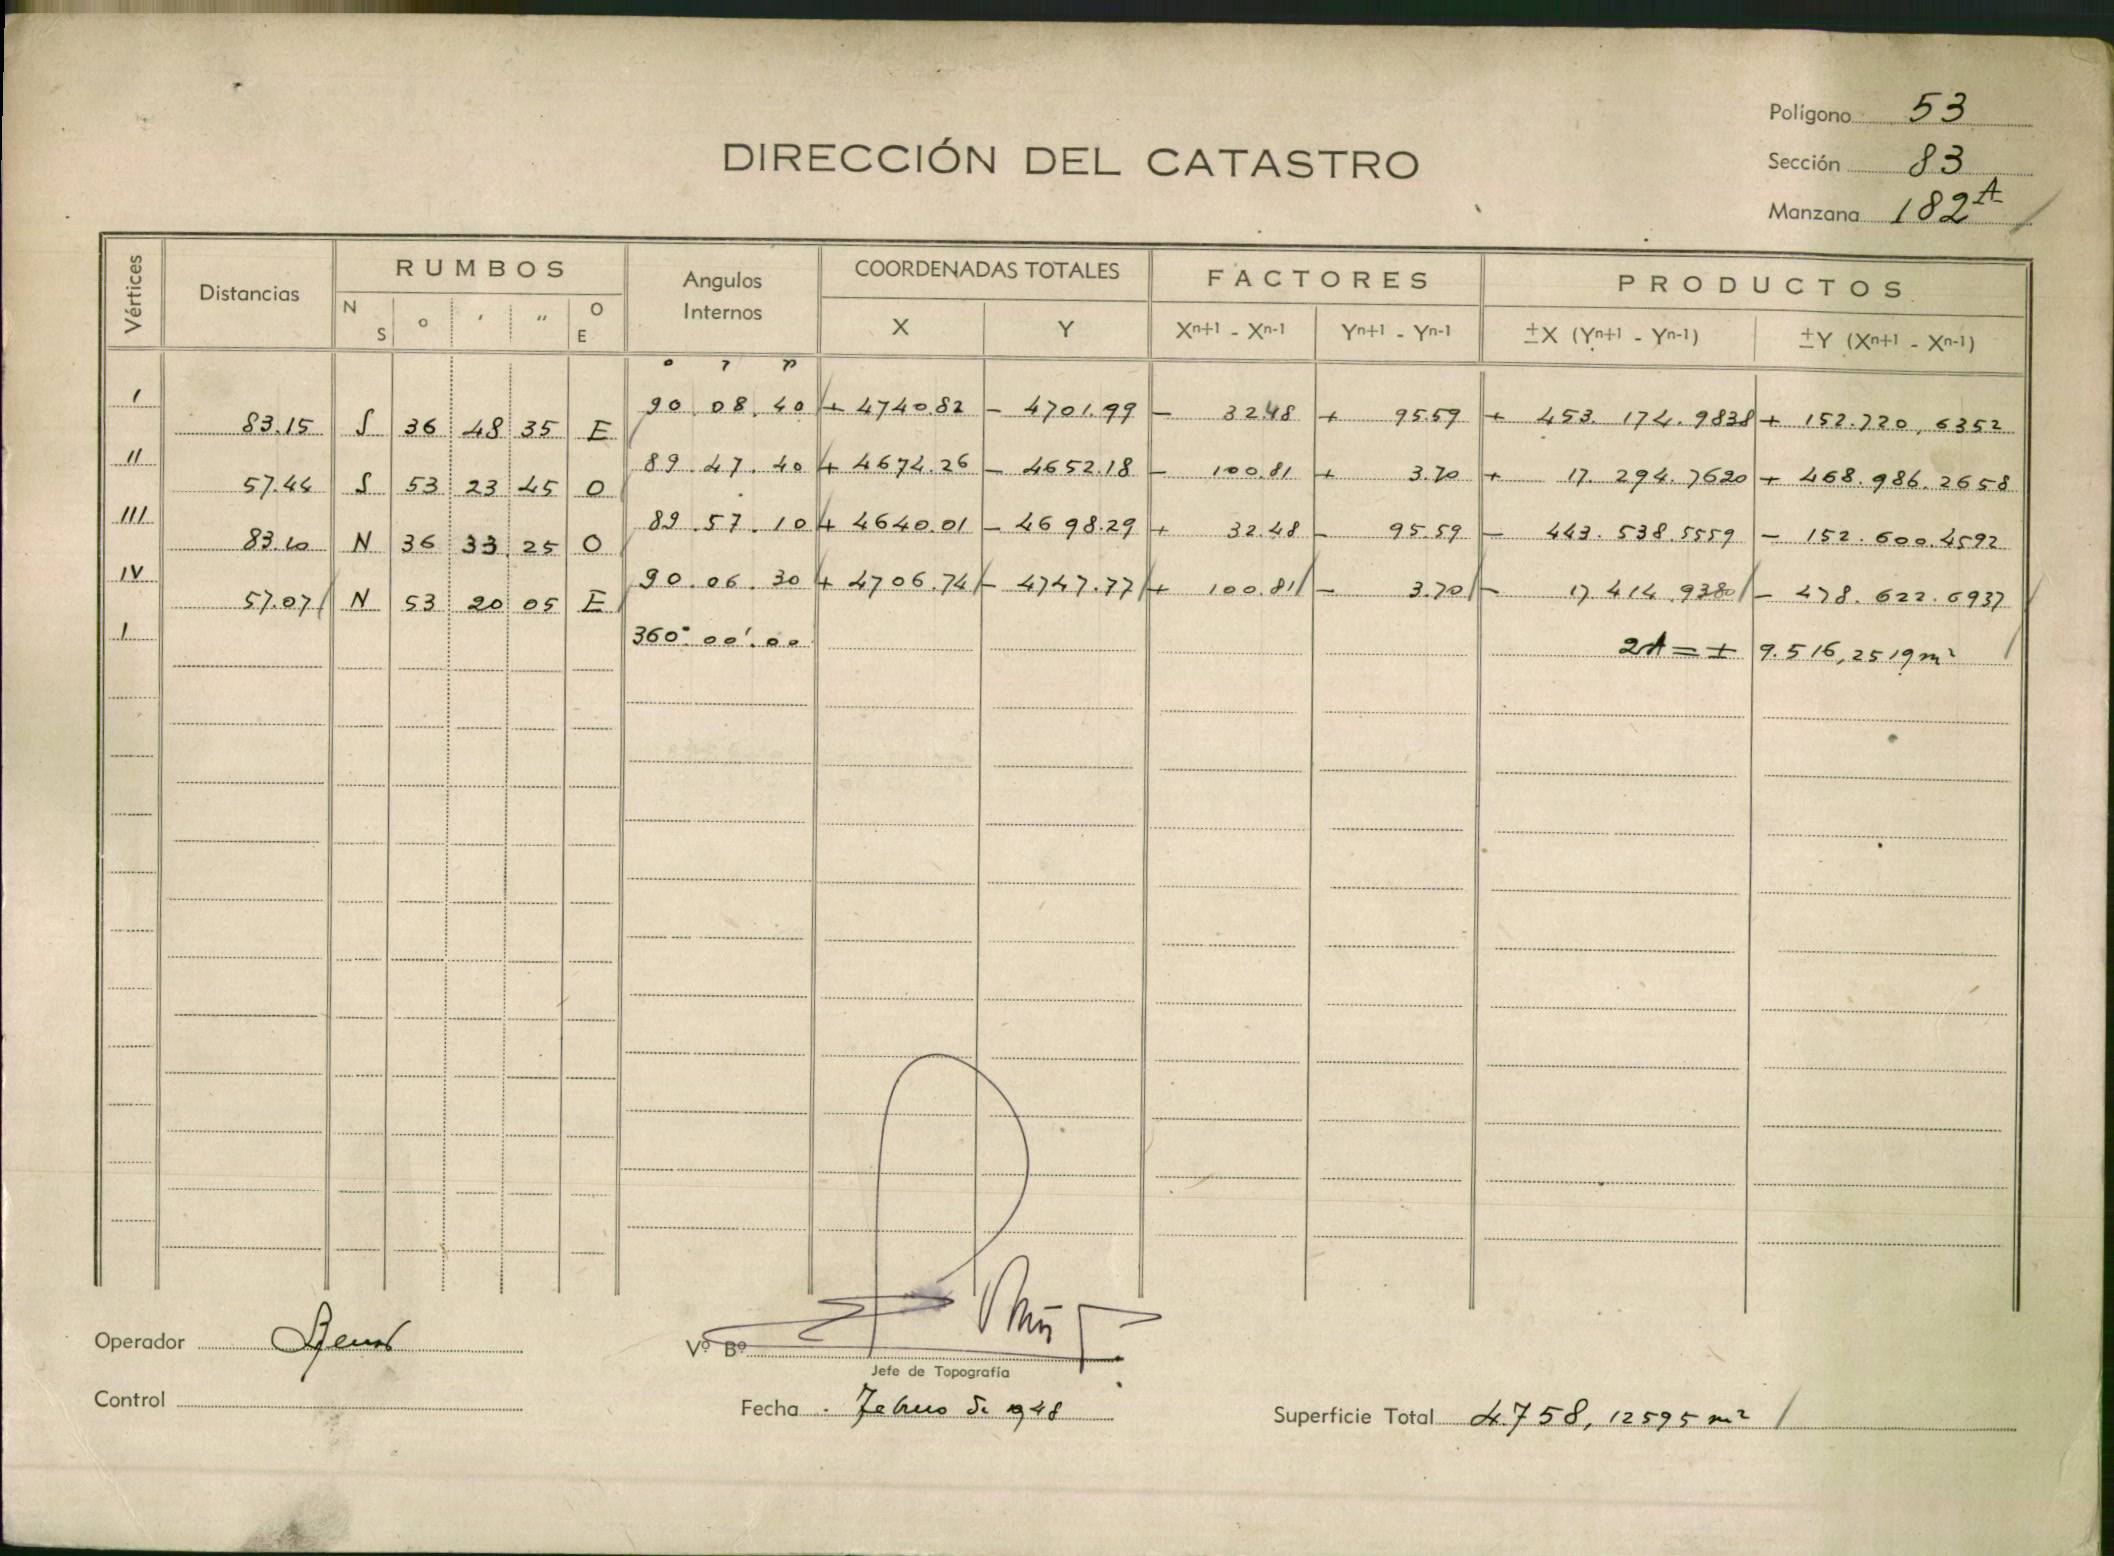 Polígono 53
DIRECCIÓN DEL CATASTRO
Sección 83
Manzana 182 A
Vértices Distancias RUMBOS Angulos Internos COORDENADAS TOTALES FACTORES PRODUCTOS
N S o ' " O E X Y Xn+1 - Xn-1 Yn+1 - Yn-1 ±X (Yn+1 - Yn-1) ±Y (Xn+1 - Xn-1)
o ' "
I 90.08.40 + 4740.82 - 4701.99 - 32.48 + 95.59 + 453.174.9838 + 152.720,6352
83.15 S 36 48 35 E
II 89.47.40 + 4674.26 - 4652.18 - 100.81 + 3.70 + 17.294.7620 + 468.986.2658
57.44 S 53 23 45 O
III 89.57.10 + 4640.01 - 4698.29 + 32.48 - 95.59 - 443.538.5559 - 152.600.4592
83.10 N 36 33 25 O
IV 90.06.30 + 4706.74 - 4747.77 + 100.81 - 3.70 - 17.414.9380 - 478.622.6937
57.07 N 53 20 05 E
I 360°.00'.00 2A = ± 9.516,2519 m²
Operador
Vº Bº
Jefe de Topografía
Control
Fecha Febrero de 1948
Superficie Total 4.758,12595 m²